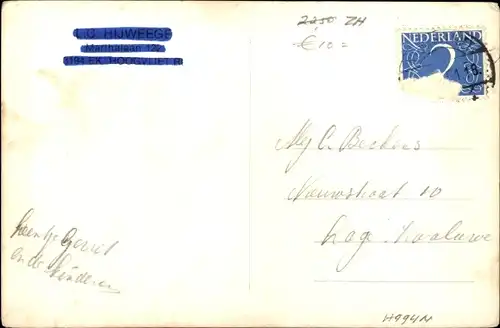 L.C. HIJWEEGE
Marthalaan 122
3194 EK HOOGVLIET R
2250 ZH
€ 10 =
NEDERLAND
2
Mej C. Beckers
Nieuwstraat 10
Lage Zwaluwe
Gerrit
en de kinderen
H994N